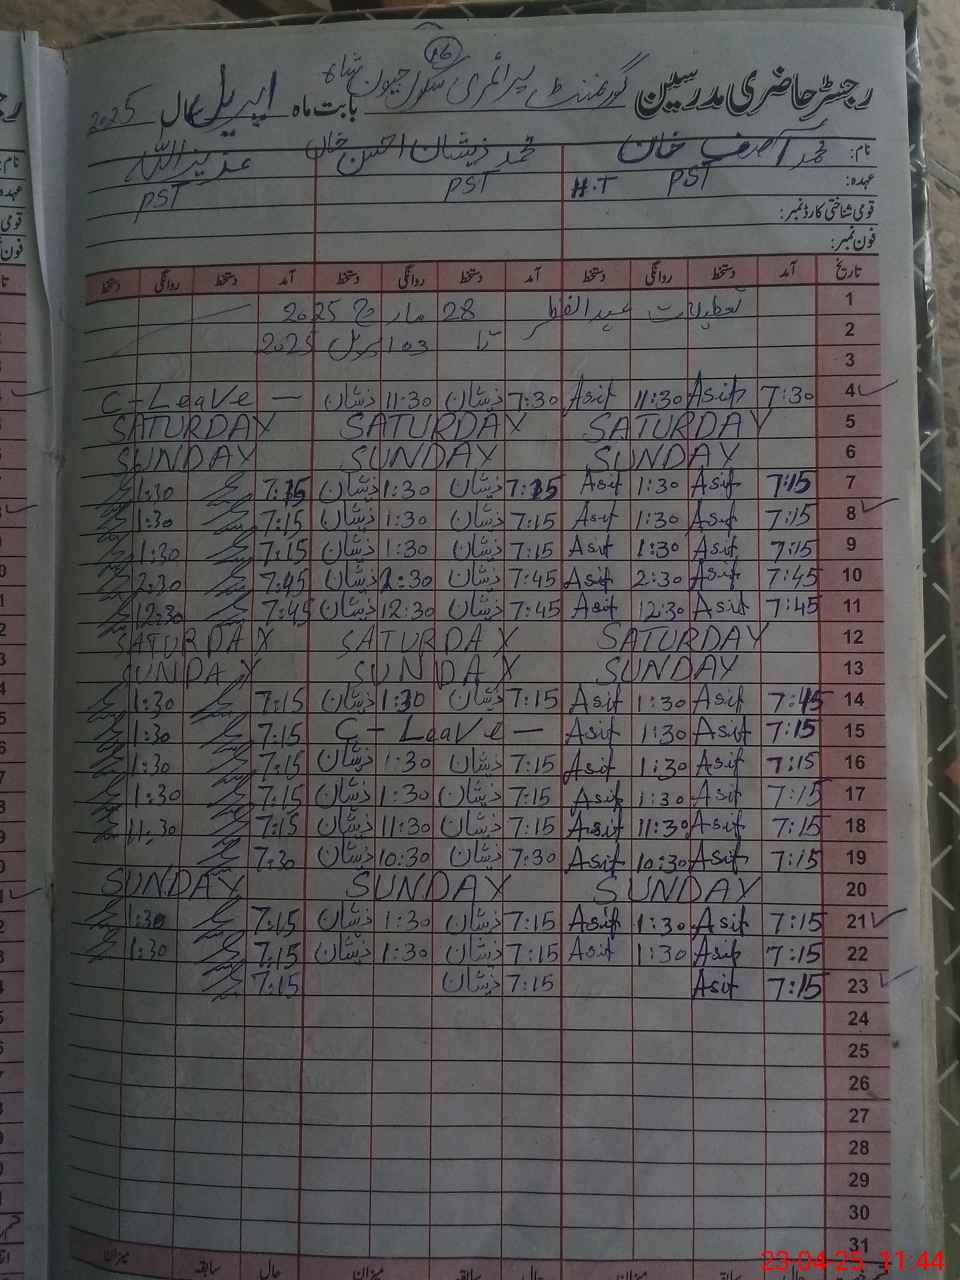 16
رجسٹر حاضری مدرسین گورنمنٹ پرائمری سکول جیون شاہ بابت ماہ اپریل سال 2025
نام: محمد آصف خان محمد ذیشان احسن خان عزیز اللہ
عہدہ: PST H.T PST PST
قومی شناختی کارڈ نمبر:
فون نمبر:
تاریخ آمد دستخط روانگی دستخط آمد دستخط روانگی دستخط آمد دستخط روانگی دستخط
1 تعطیلات عید الفطر 28 مارچ 2025
2 تا 03 اپریل 2025
3
4 7:30 Asif 11:30 Asif 7:30 ذیشان 11:30 ذیشان C-Leave —
5 SATURDAY SATURDAY SATURDAY
6 SUNDAY SUNDAY SUNDAY
7 7:15 Asif 1:30 Asif 7:15 ذیشان 1:30 ذیشان 7:15 1:30
8 7:15 Asif 1:30 Asif 7:15 ذیشان 1:30 ذیشان 7:15 1:30
9 7:15 Asif 1:30 Asif 7:15 ذیشان 1:30 ذیشان 7:15 1:30
10 7:45 Asif 2:30 Asif 7:45 ذیشان 2:30 ذیشان 7:45 2:30
11 7:45 Asif 12:30 Asif 7:45 ذیشان 12:30 ذیشان 7:45 12:30
12 SATURDAY SATURDAY SATURDAY
13 SUNDAY SUNDAY SUNDAY
14 7:15 Asif 1:30 Asif 7:15 ذیشان 1:30 ذیشان 7:15 1:30
15 7:15 Asif 1:30 Asif C-Leave — 7:15 1:30
16 7:15 Asif 1:30 Asif 7:15 ذیشان 1:30 ذیشان 7:15 1:30
17 7:15 Asif 1:30 Asif 7:15 ذیشان 1:30 ذیشان 7:15 1:30
18 7:15 Asif 11:30 Asif 7:15 ذیشان 11:30 ذیشان 7:15 11:30
19 7:15 Asif 10:30 Asif 7:30 ذیشان 10:30 ذیشان 7:30
20 SUNDAY SUNDAY SUNDAY
21 7:15 Asif 1:30 Asif 7:15 ذیشان 1:30 ذیشان 7:15 1:30
22 7:15 Asif 1:30 Asif 7:15 ذیشان 1:30 ذیشان 7:15 1:30
23 7:15 Asif 7:15 ذیشان 7:15
24
25
26
27
28
29
30
31
حال سابقہ میزان حال سابقہ میزان
23-04-25 11:44